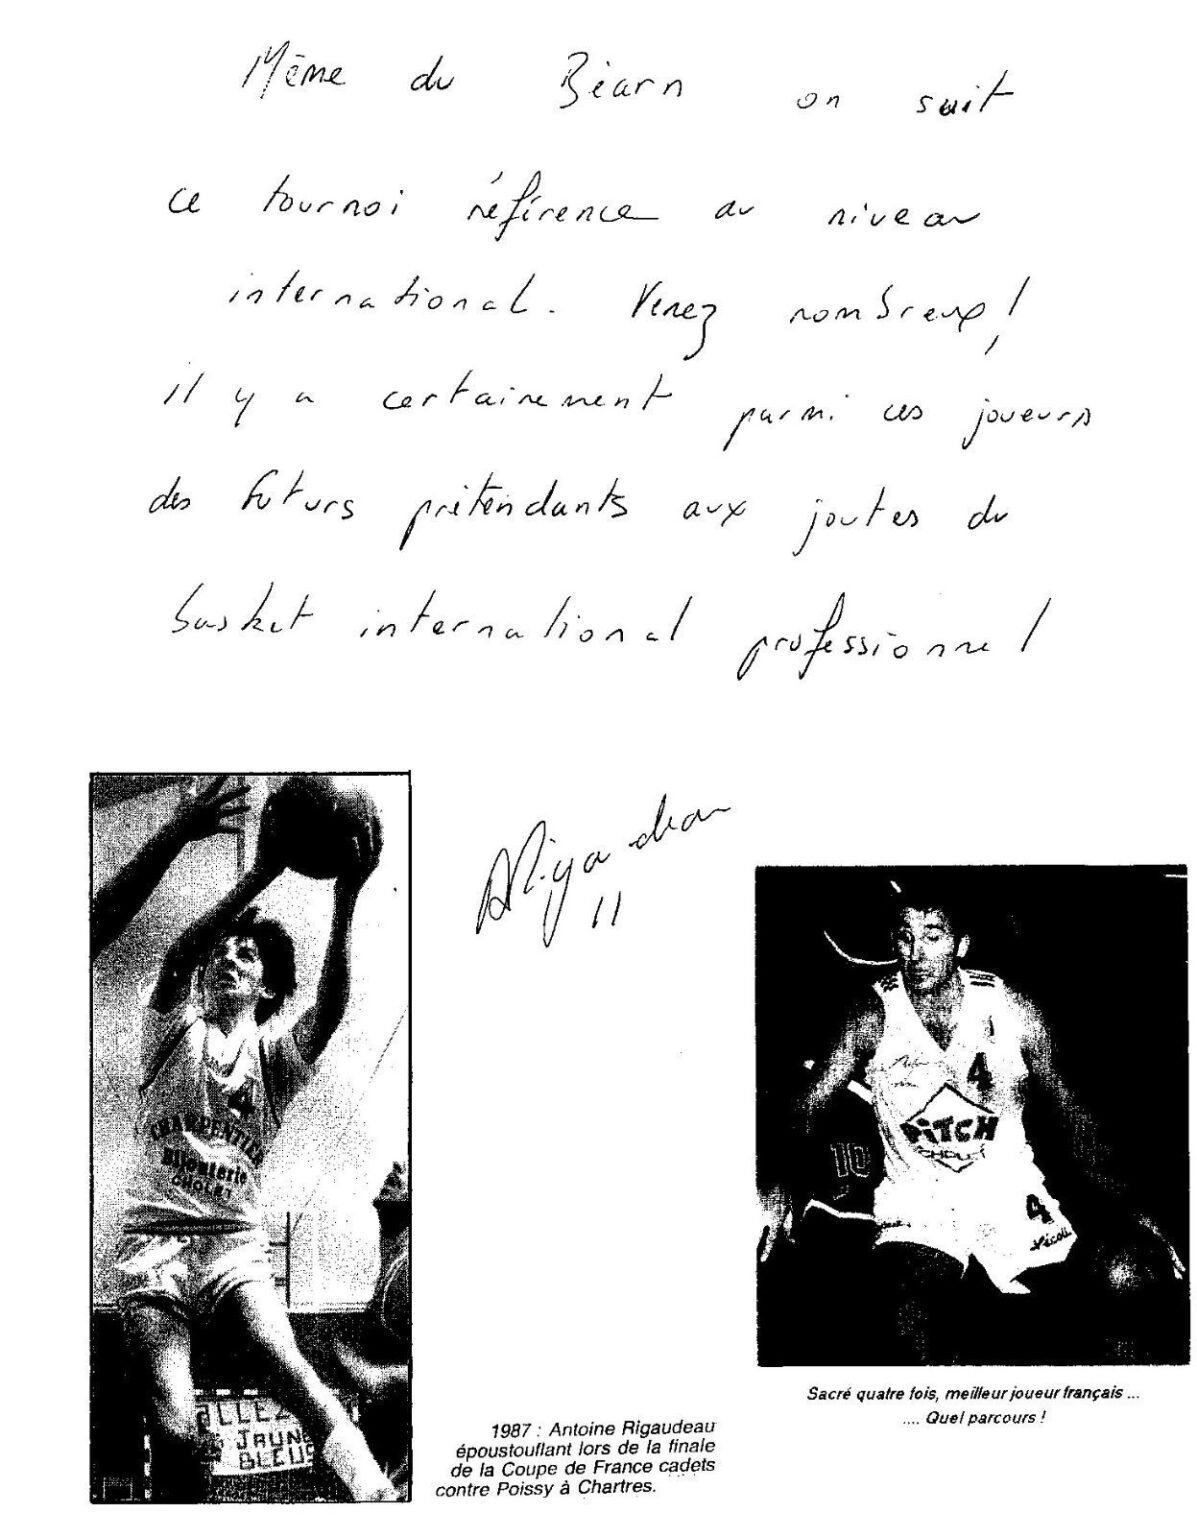 Même du Béarn on suit
ce tournoi référence au niveau
international. Venez nombreux,!
il y a certainement parmi ces joueurs
des futurs prétendants aux joutes du
basket international professionnel
ARigaudeau
11
4
CHARPENTIER
Bijouterie
CHOLET
ALLEZ
JAUNE
BLEUS
4
PITCH
CHOLET
10
4
1987 : Antoine Rigaudeau
époustouflant lors de la finale
de la Coupe de France cadets
contre Poissy à Chartres.
Sacré quatre fois, meilleur joueur français ...
.... Quel parcours !